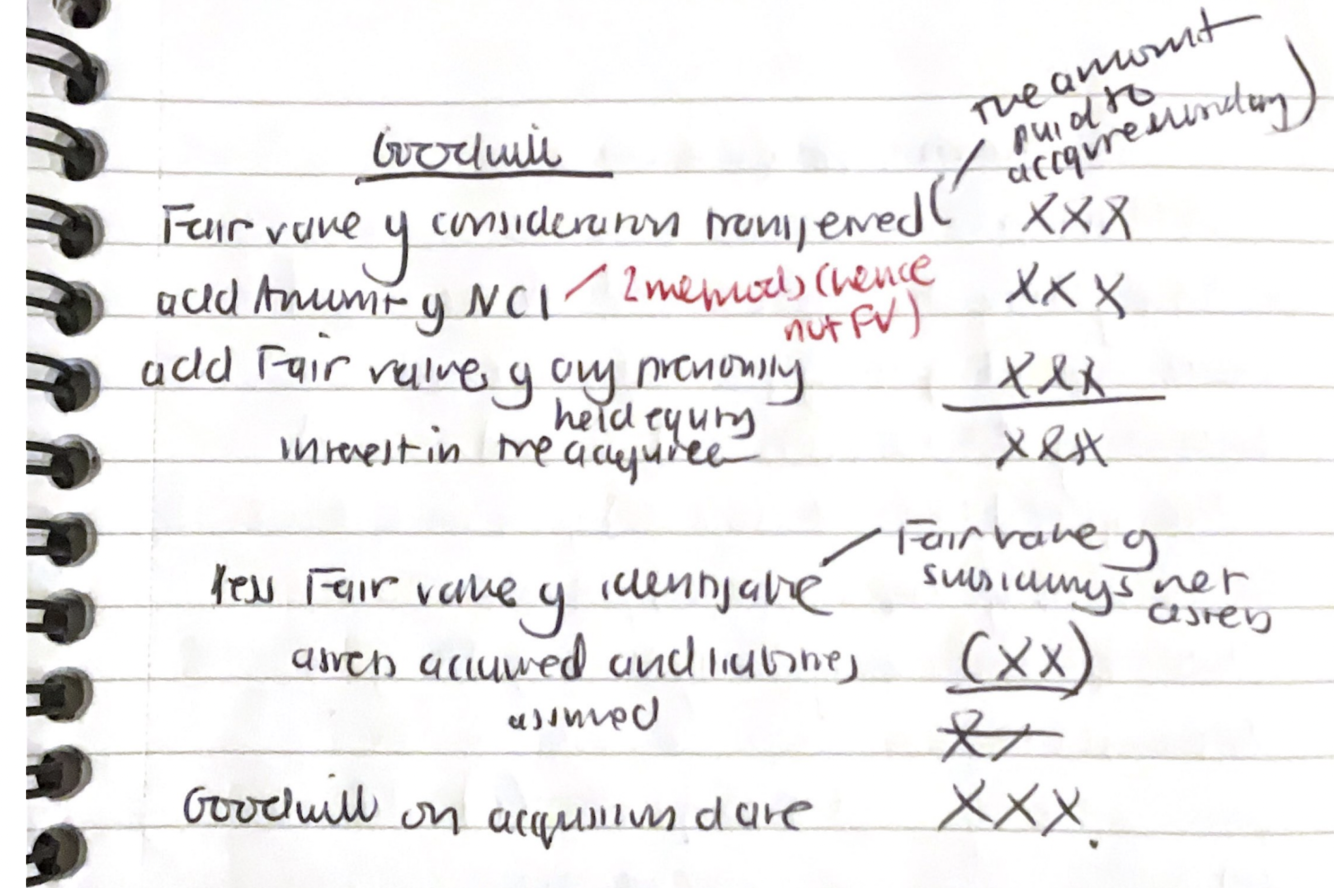 Goodwill
the amount
paid to
accqure subsidiary)
Fair value of consideration transferred ( XXX
add Amount of NCI 2 methods (hence XXX
not FV)
add Fair values of any previously XXX
held equity
interest in the acquiree XXX
Fair value of
less Fair value of identifiable subsidiary's net
assets
assets acquired and liabilities (XX)
assumed
Goodwill on acquisition date XXX.